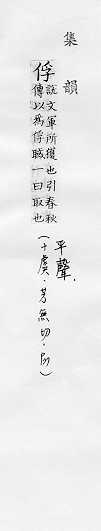 集韻
俘說文軍所獲也引春秋
傳以為俘聝一曰取也
平聲.
(十虞.芳無切.)